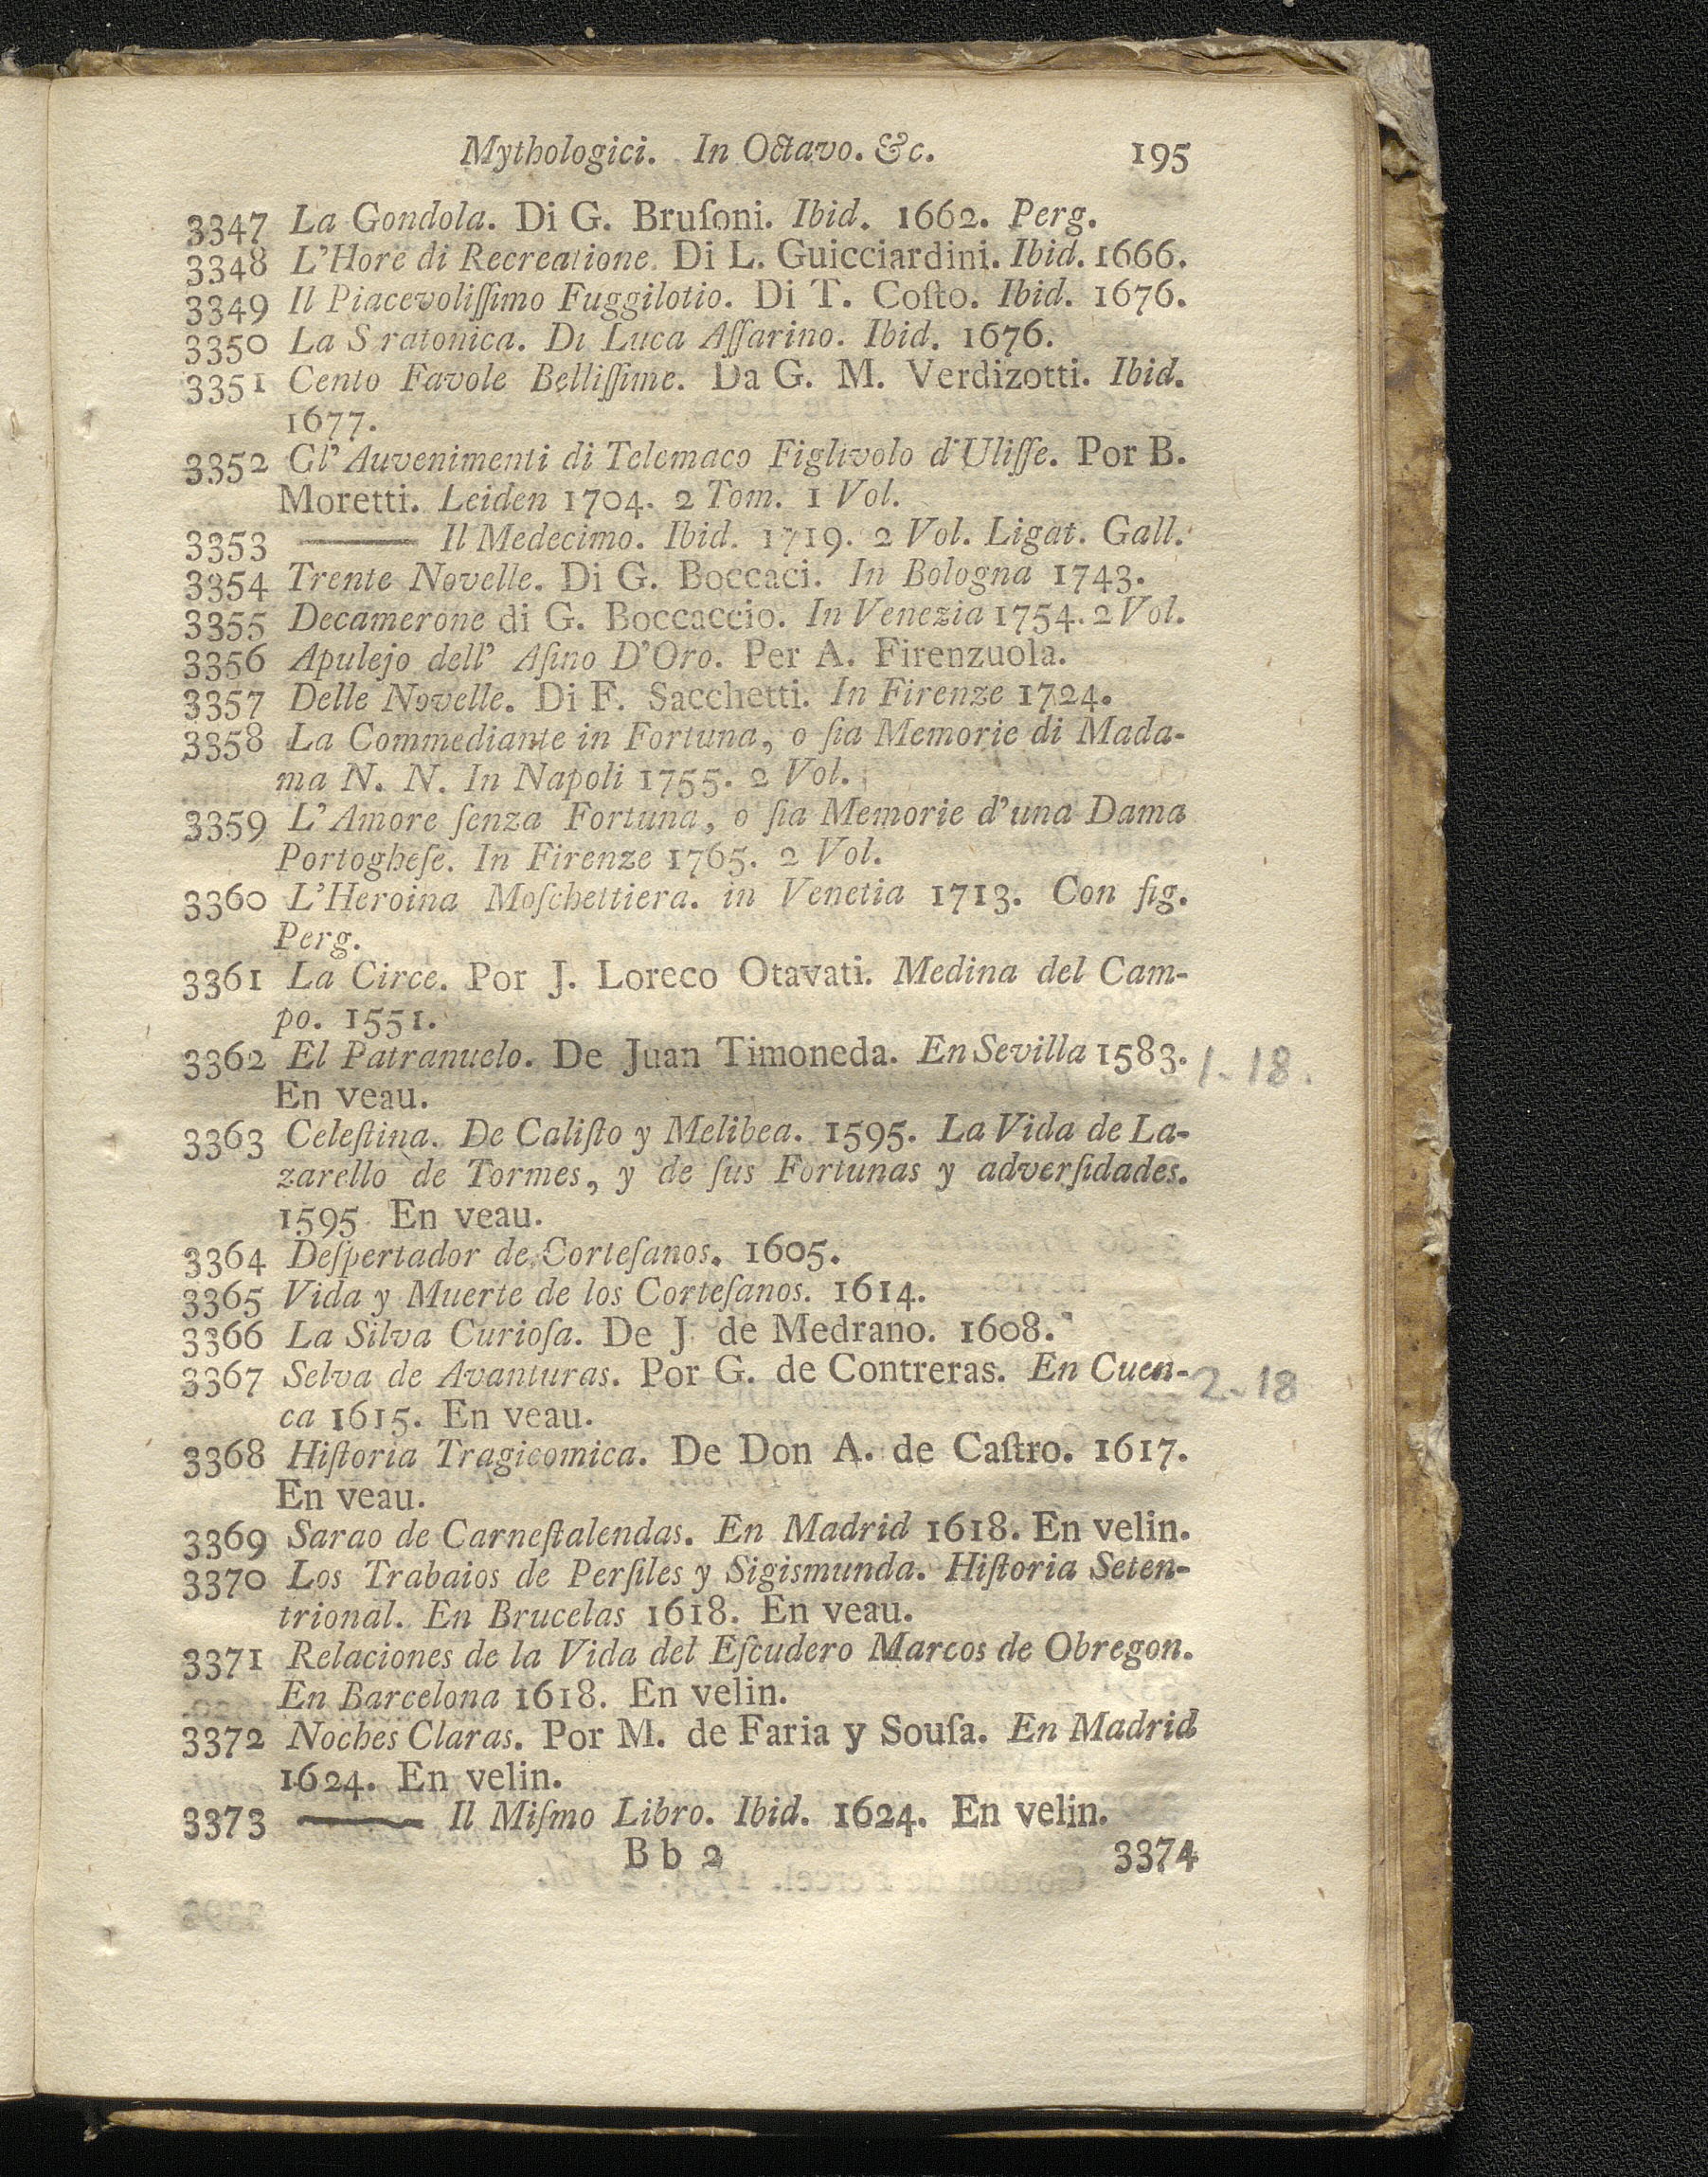 Mythologici. In Octavo. &c. 195
3347 La Gondola. Di G. Bruſoni. Ibid. 1662. Perg.
3348 L'Hore di Recreatione. Di L. Guicciardini. Ibid. 1666.
3349 Il Piacevoliſſimo Fuggilotio. Di T. Coſto. Ibid. 1676.
3350 La S ratonica. Di Luca Aſſarino. Ibid. 1676.
3351 Cento Favole Belliſſime. Da G. M. Verdizotti. Ibid.
1677.
3352 Gl' Auvenimenti di Telemaco Figlivolo d'Uliſſe. Por B.
Moretti. Leiden 1704. 2 Tom. 1 Vol.
3353 ——— Il Medecimo. Ibid. 1719. 2 Vol. Ligat. Gall.
3354 Trente Novelle. Di G. Boccaci. In Bologna 1743.
3355 Decamerone di G. Boccaccio. In Venezia 1754. 2 Vol.
3356 Apulejo dell' Aſino D'Oro. Per A. Firenzuola.
3357 Delle Novelle. Di F. Sacchetti. In Firenze 1724.
3358 La Commediante in Fortuna, o ſia Memorie di Mada-
ma N. N. In Napoli 1755. 2 Vol.
3359 L'Amore ſenza Fortuna, o ſia Memorie d'una Dama
Portogheſe. In Firenze 1765. 2 Vol.
3360 L'Heroina Moſchettiera. in Venetia 1713. Con fig.
Perg.
3361 La Circe. Por J. Loreco Otavati. Medina del Cam-
po. 1551.
3362 El Patranuelo. De Juan Timoneda. En Sevilla 1583. 1-18.
En veau.
3363 Celeſtina. De Caliſto y Melibea. 1595. La Vida de La-
zarello de Tormes, y de ſus Fortunas y adverſidades.
1595 En veau.
3364 Deſpertador de Corteſanos. 1605.
3365 Vida y Muerte de los Corteſanos. 1614.
3366 La Silva Curioſa. De J. de Medrano. 1608.
3367 Selva de Avanturas. Por G. de Contreras. En Cuen- 2-18
ca 1615. En veau.
3368 Hiſtoria Tragicomica. De Don A. de Caſtro. 1617.
En veau.
3369 Sarao de Carneſtalendas. En Madrid 1618. En velin.
3370 Los Trabaios de Perſiles y Sigismunda. Hiſtoria Seten-
trional. En Brucelas 1618. En veau.
3371 Relaciones de la Vida del Eſcudero Marcos de Obregon.
En Barcelona 1618. En velin.
3372 Noches Claras. Por M. de Faria y Souſa. En Madrid
1624. En velin.
3373 ——— Il Miſmo Libro. Ibid. 1624. En velin.
B b 2 3374